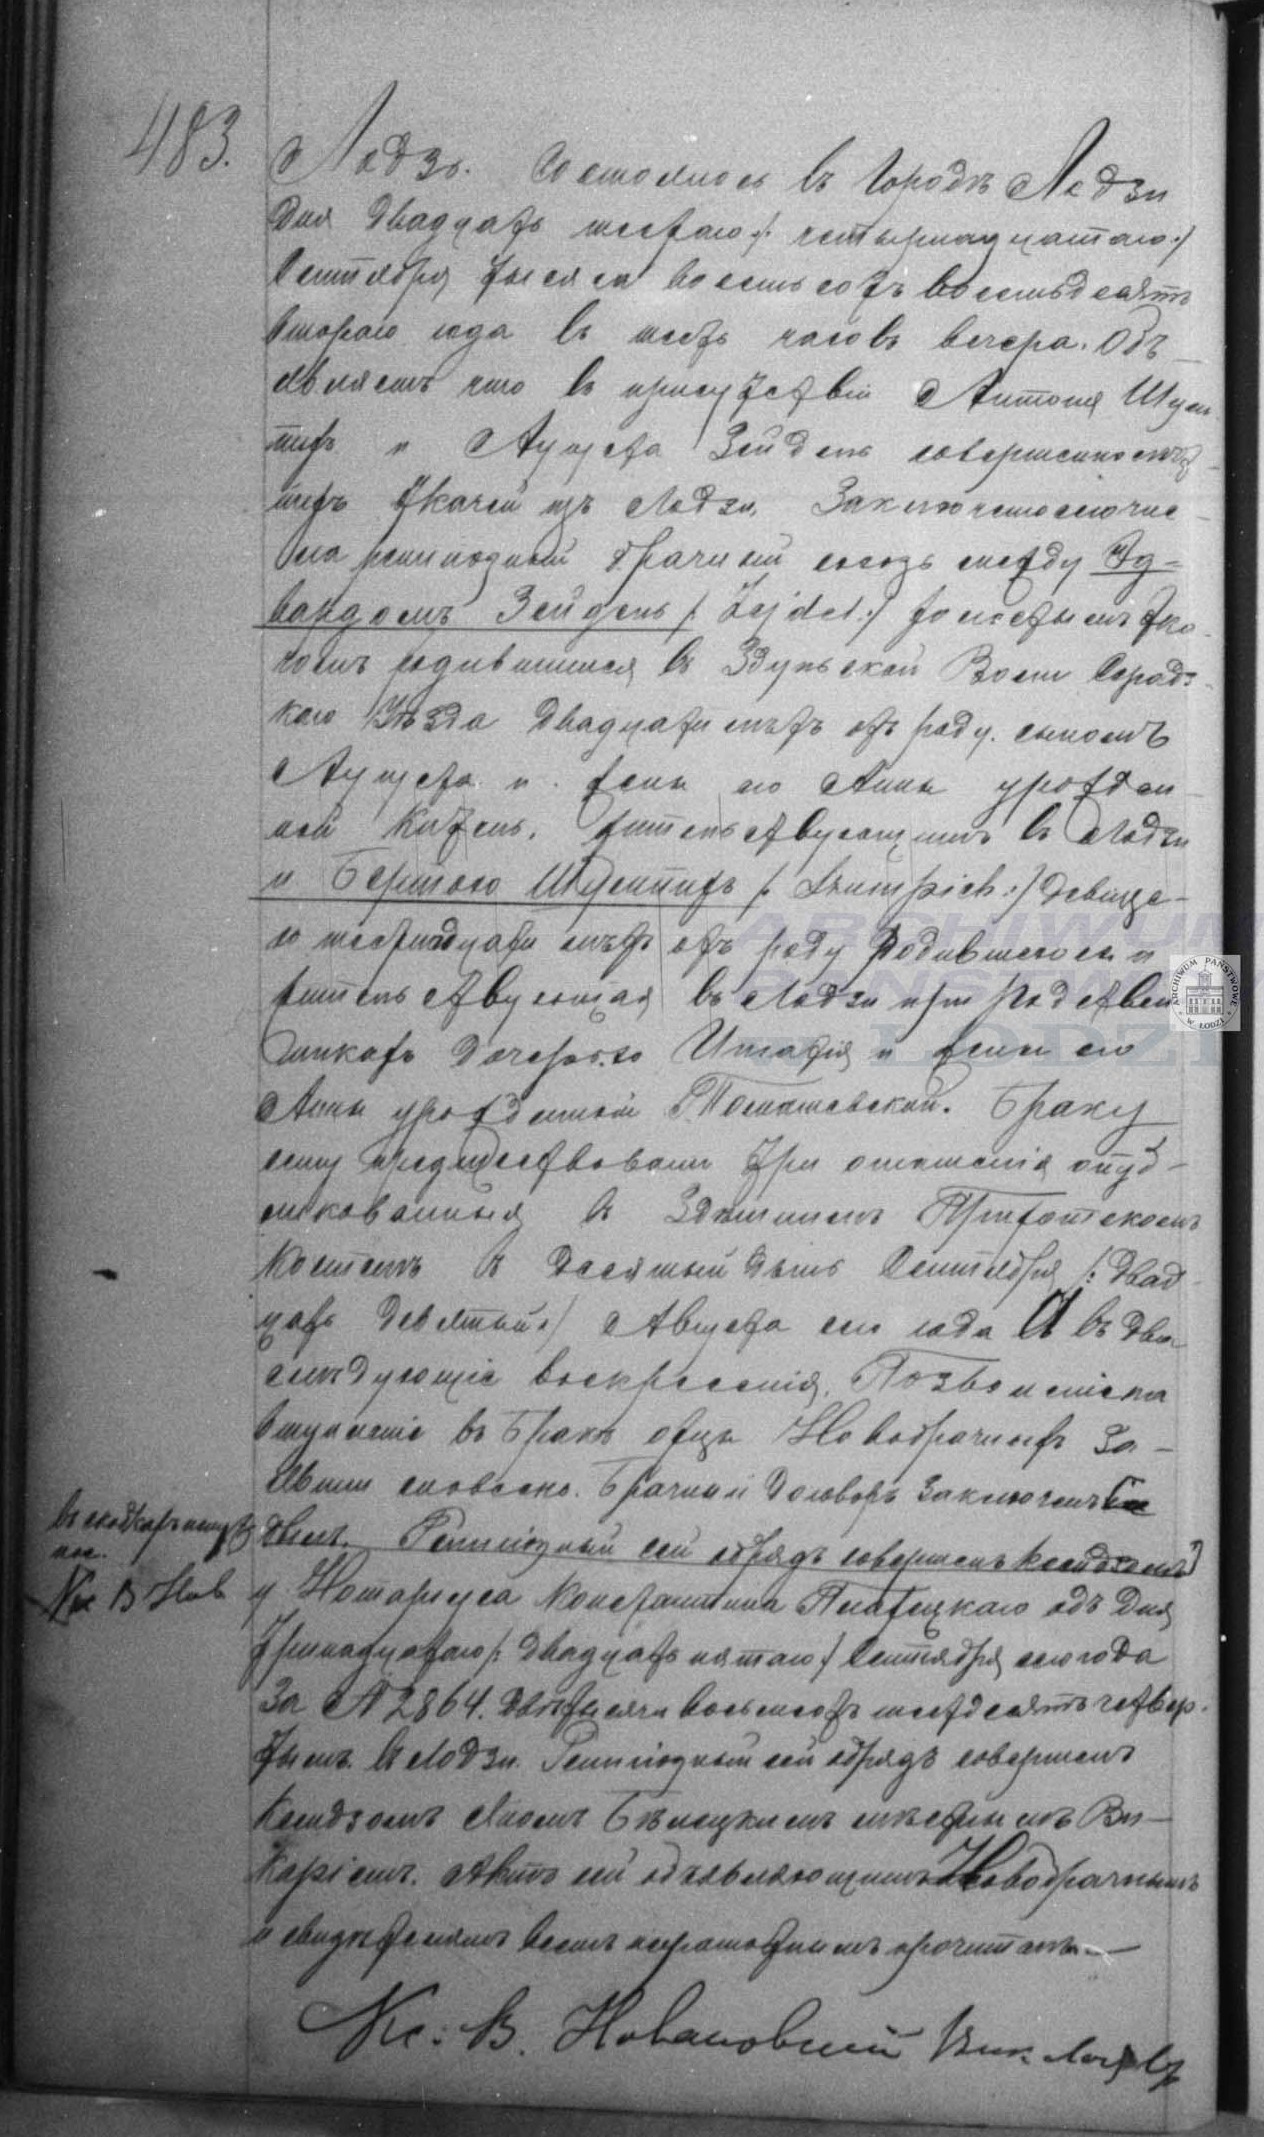 483.
Лодзь. Состоялось въ Городѣ Лодзи
Дня Двадцать шестаго /: четырнадцатаго :/
Сентября тысяча восемьсотъ восемьдесятъ
втораго года въ шесть часовъ вечера. Объ-
являемъ что въ присутствіи Антона Шум
пихъ и Августа Зейдель совершеннолѣт-
нихъ Ткачей изъ Лодзи, Заключено сего чис-
ла религiозный брачный союзъ между Эд-
вардомъ Зейдель /: Zejdel :/ холостымъ Тка-
чомъ родившимся въ Здунской Воли Сѣрадз-
каго Уѣзда Двадцати лѣтъ отъ роду, сыномъ
Августа и жены его Анны урожден-
ной, жительствующимъ въ Лодзи
и Бертою Шумпихъ /: Szumpich :/ Девице-
ю шестнадцати лѣтъ отъ роду родившеюся и
жительствующая въ Лодзи при Родствен
никахъ Дочерью Игнатія и жены его
Анны урожденной Томашевской. Браку
сему предшествовали три оглашенія опуб-
ликованныя въ Здѣшнемъ Приходскомъ
Костелѣ въ десятый день Сентября /: двад-
цать девятый :/ Августа сего года А въ два
слѣдующіе воскресенія. Позволеніе на
вступленіе въ Бракъ отцы Новобрачныхъ за-
явили словесно. Брачный Договоръ заключенъ
Религіозный сей обрядъ совершенъ Ксендзомъ
Кс В Нов
у Нотаріуса Константина Плахецкаго отъ Дня
Тринадцатаго /: Двадцать пятаго :/ Сентября сего года
За № 2864. Двѣ тысячи восемьсотъ шестдесятъ четвер-
тымъ въ Лодзи. Религіозный сей обрядъ совершенъ
Ксендзомъ Яномъ Бѣлецкимъ мѣстнымъ Ви-
каріемъ. Актъ сей объявляющимъ Новобрачнымъ
и свидѣтелямъ всемъ неграмотнымъ прочитанъ
Кс: В. Новаковскій Вик.
ARCHIWUM
PAŃSTWOWE
W ŁODZI
ARCHIWUM PAŃSTWOWE
W ŁODZI